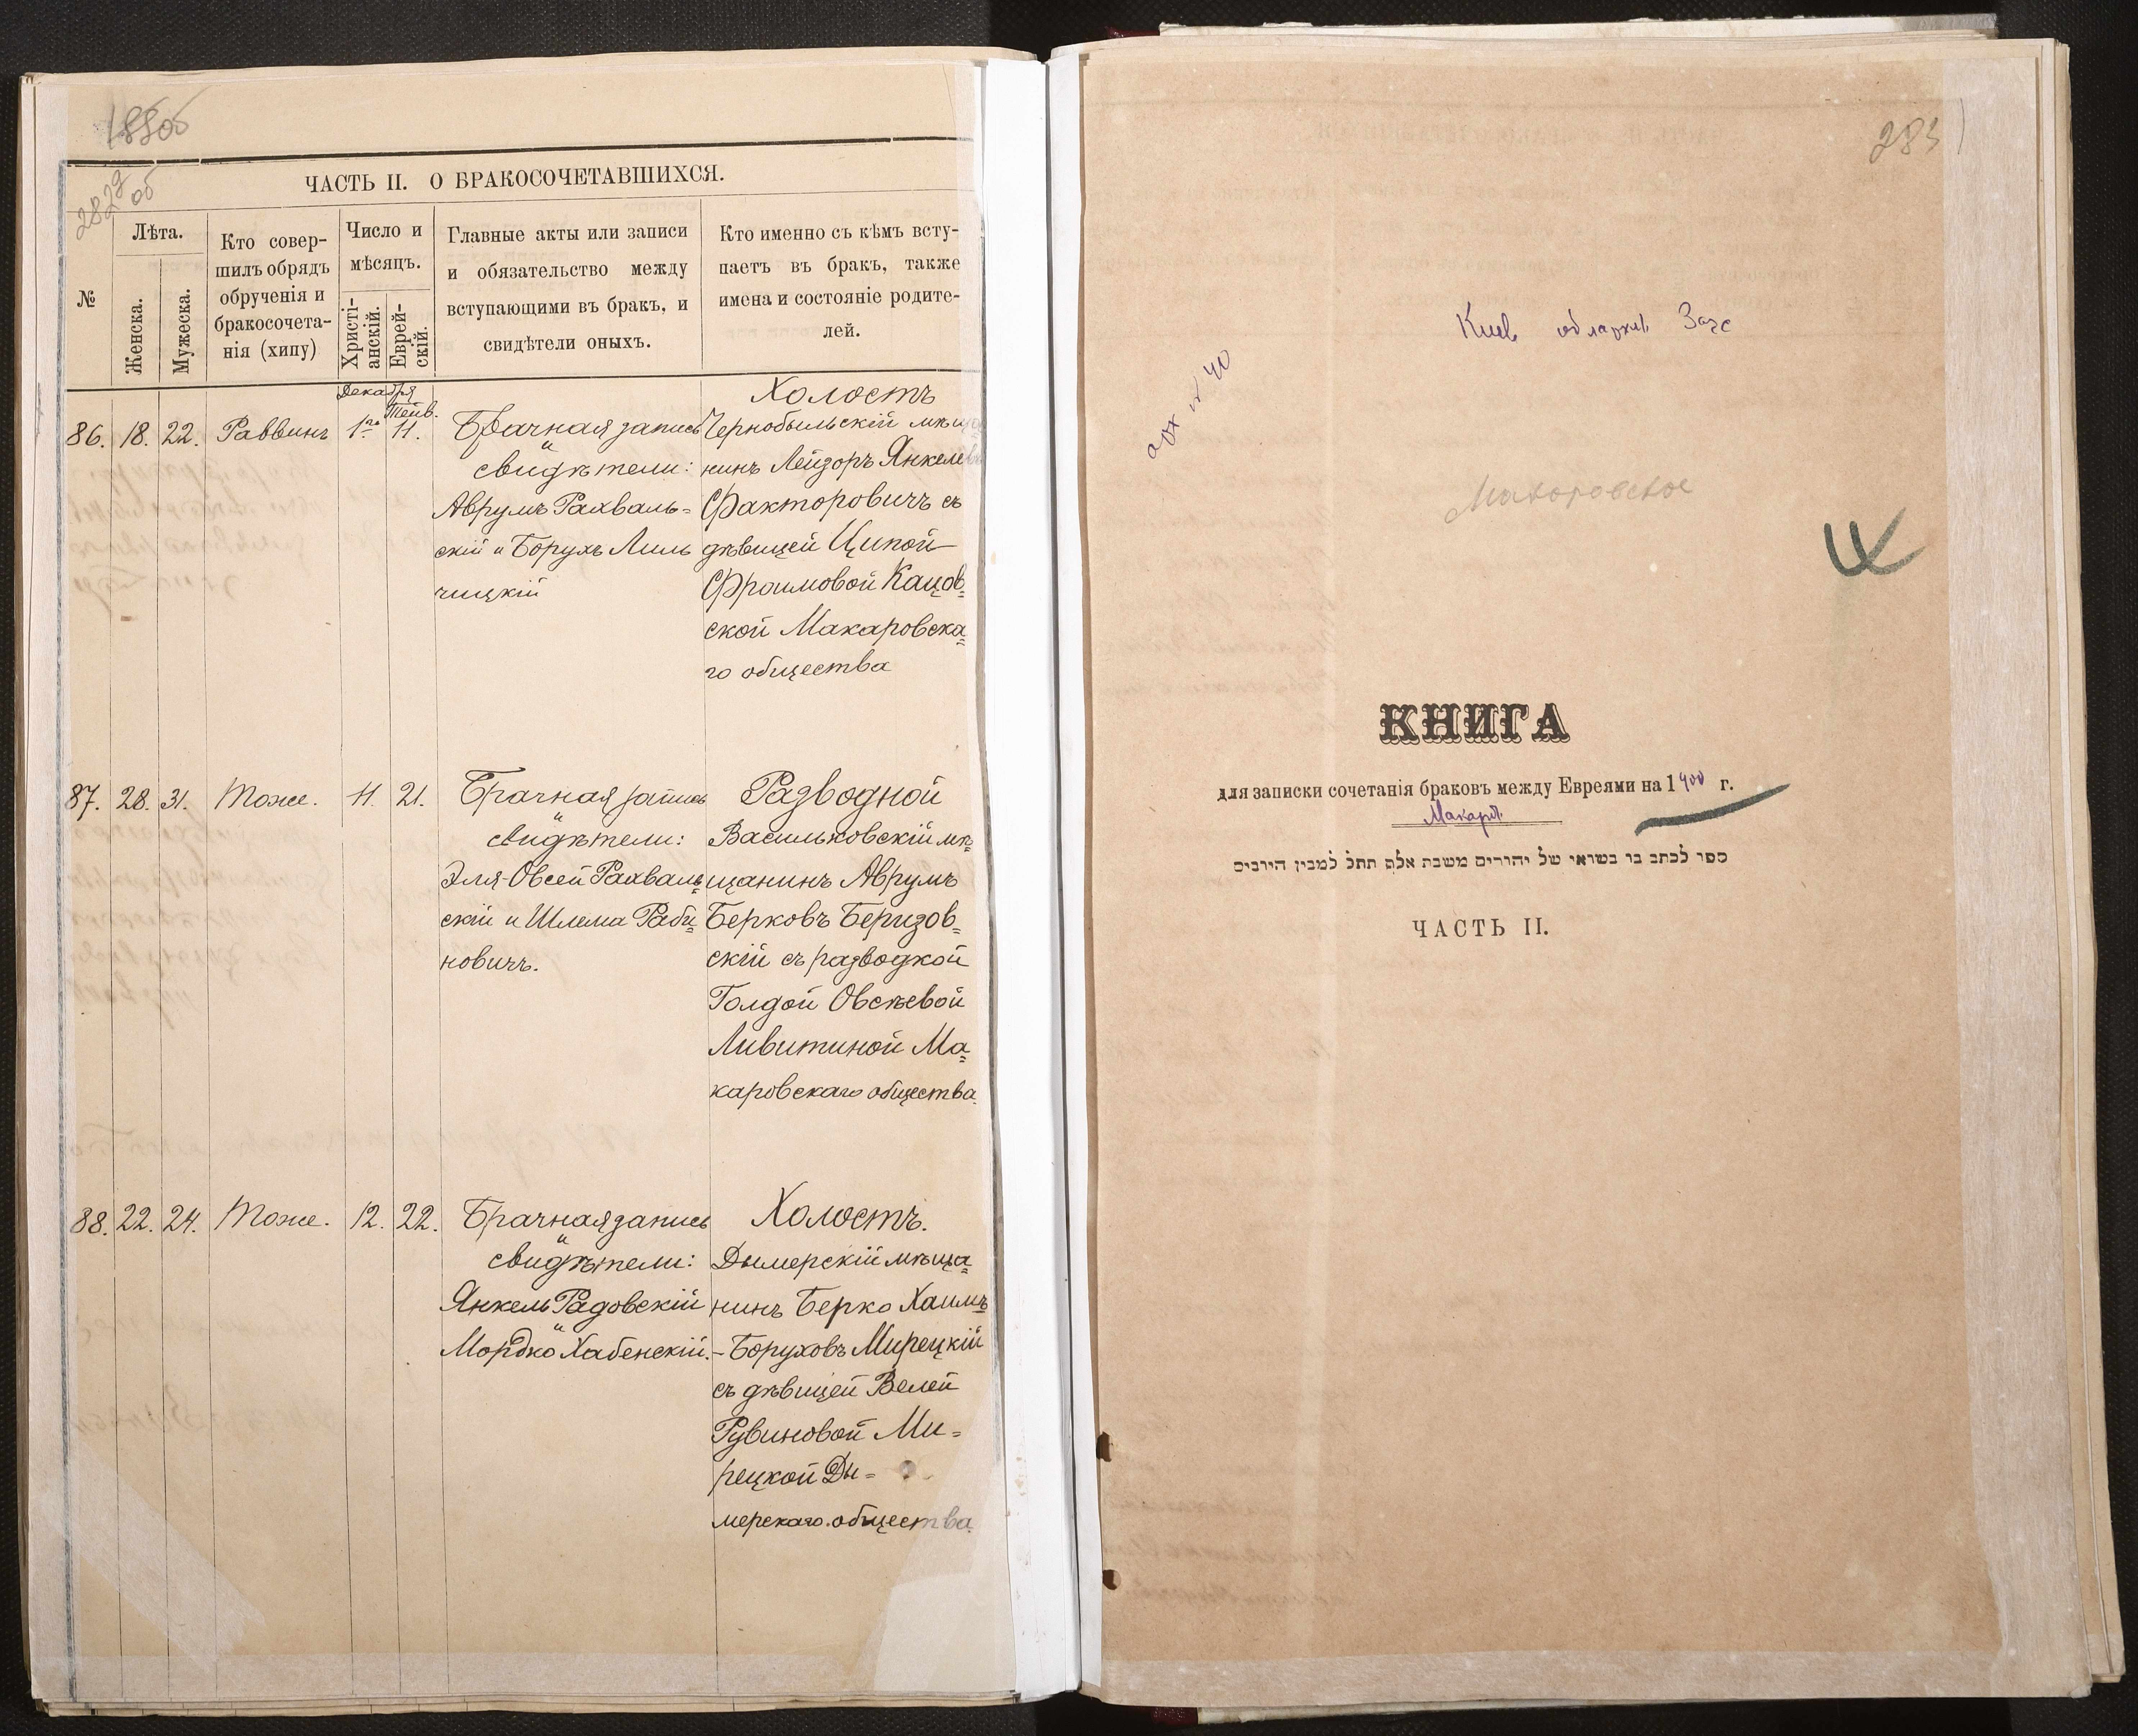 282 об
ЧАСТЬ II. О БРАКОСОЧЕТАВШИХСЯ.
№
Лѣта.
Женска.
Мужеска.
Кто совер-
шилъ обрядъ
обрученія и
бракосочета-
нія (хипу)
Число и
мѣсяцъ.
Христі-
анскій.
Еврей-
скій.
Главные акты или записи
и обязательство между
вступающими въ бракъ, и
свидѣтели оныхъ.
Кто именно съ кѣмъ всту-
паетъ въ бракъ, также
имена и состояніе родите-
лей.
Декабря
Тейв.
86. 18. 22. Раввинъ 1го 11.
Брачная запись
и
свидѣтели:
Аврумъ Рахваль=
скій и Борухъ Лиль
чицкій
Холостъ
Чернобыльскій мѣща
нинъ Лейзоръ Янкелев
Факторовичъ съ
дѣвицей Ципой
Фроимовой Кацов=
ской Макаровска=
го общества
87. 28. 31. Тоже. 11. 21.
Брачная запись
и
свидѣтели:
Эля-Овсей Рахваль=
скій и Шлема Раби=
новичъ.
Разводной
Васильковскій мѣ=
щанинъ Аврумъ
Берковъ Беризов=
скій съ разводкой
Голдой Овсѣевой
Ливитиной Ма=
каровскаго общества.
88. 22. 24. Тоже. 12. 22.
Брачная запись
и
свидѣтели:
Янкель Радовскій
и
Мордко Хабенскій.
Холостъ.
Дымерскій мѣща=
нинъ Берко Хаимъ
-Боруховъ Мирецкій
съ дѣвицей Велей
Рувиновой Ми=
рецкой Ды=
мерскаго общества.
283
Киев обл архив Загс
арх № 40
Макаровское
КНИГА
для записки сочетанія браковъ между Евреями на 1900 г.
Макаров
ספר לכתב בו בשואי של יהורים משבת אלף תתל למבין הירבים
ЧАСТЬ II.